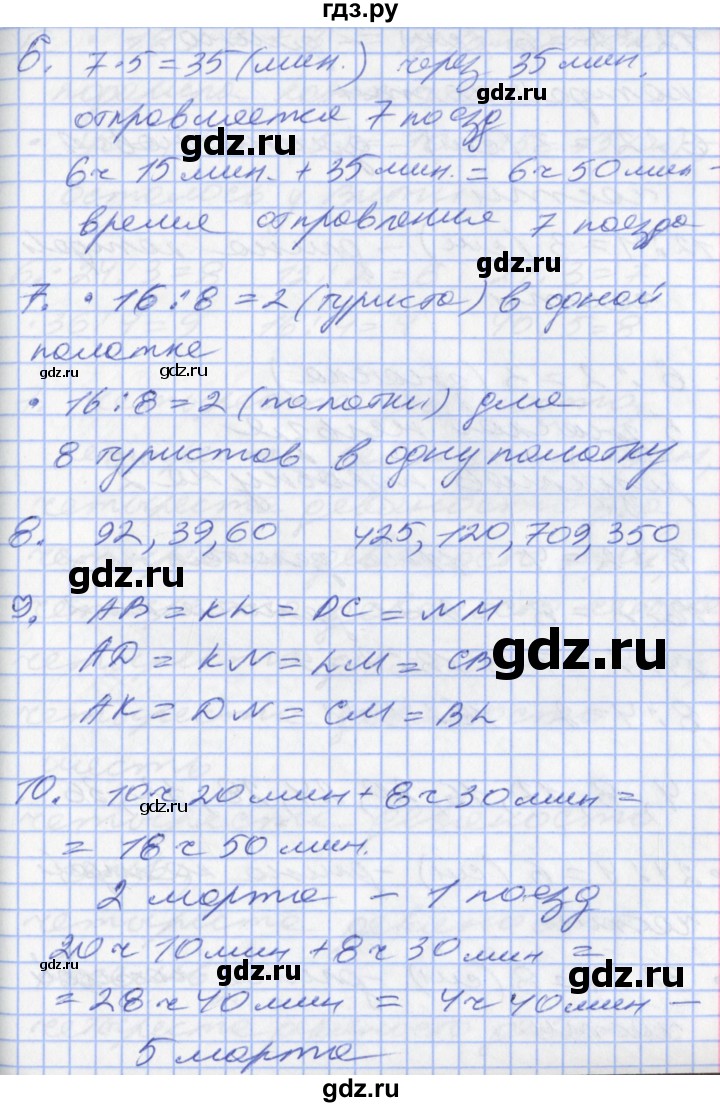 гдз.ру
6. 7·5=35 (мин.) через 35 мин.
отправляется 7 поезд
6 ч 15 мин. + 35 мин. = 6 ч 50 мин -
время отправления 7 поезда
7. • 16:8=2 (туриста) в одной
палатке
• 16:8=2 (палатки) для
8 туристов в одну палатку
8. 92, 39, 60 425, 120, 709, 350
9. AB = KL = DC = NM
AD = KN = LM = CB
AK = DN = CM = BL
10. 10 ч 20 мин + 8 ч 30 мин =
= 18 ч 50 мин.
2 марта - 1 поезд
20 ч 10 мин + 8 ч 30 мин =
= 28 ч 40 мин = 4 ч 40 мин -
5 марта
gdz.ru
gdz.ru
gdz.ru
gdz.ru
gdz.ru
gdz.ru
gdz.ru
gdz.ru
gdz.ru
gdz.ru
gdz.ru
gdz.ru
gdz.ru